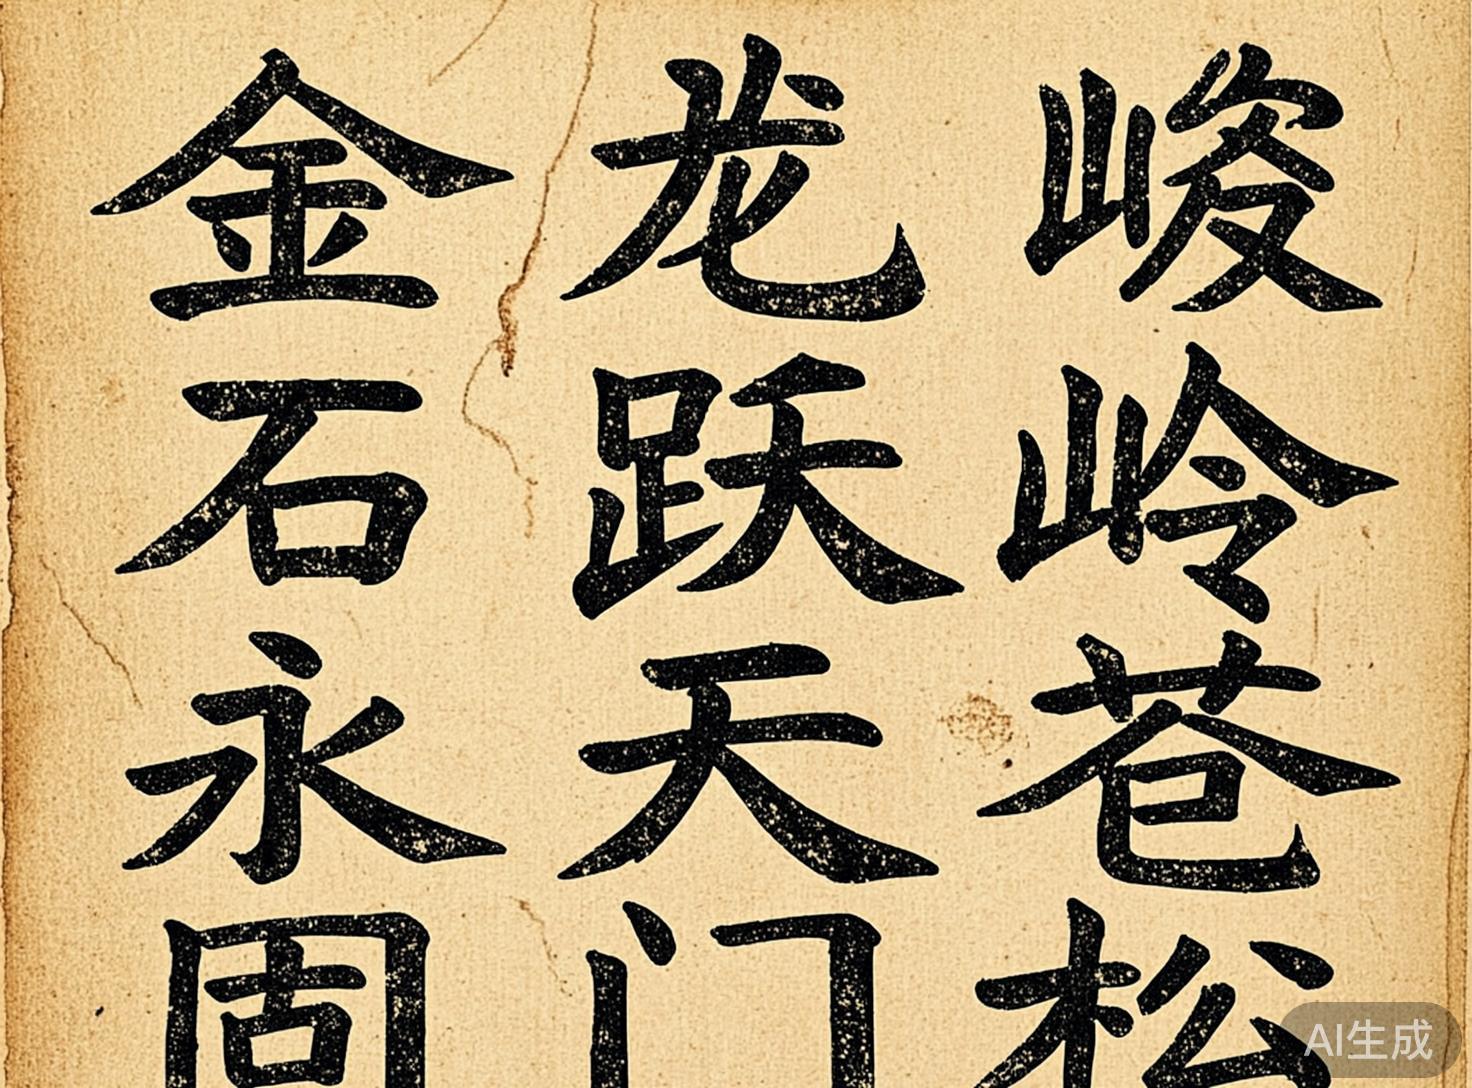 峻岭苍松
龙跃天门
金石永固
AI生成